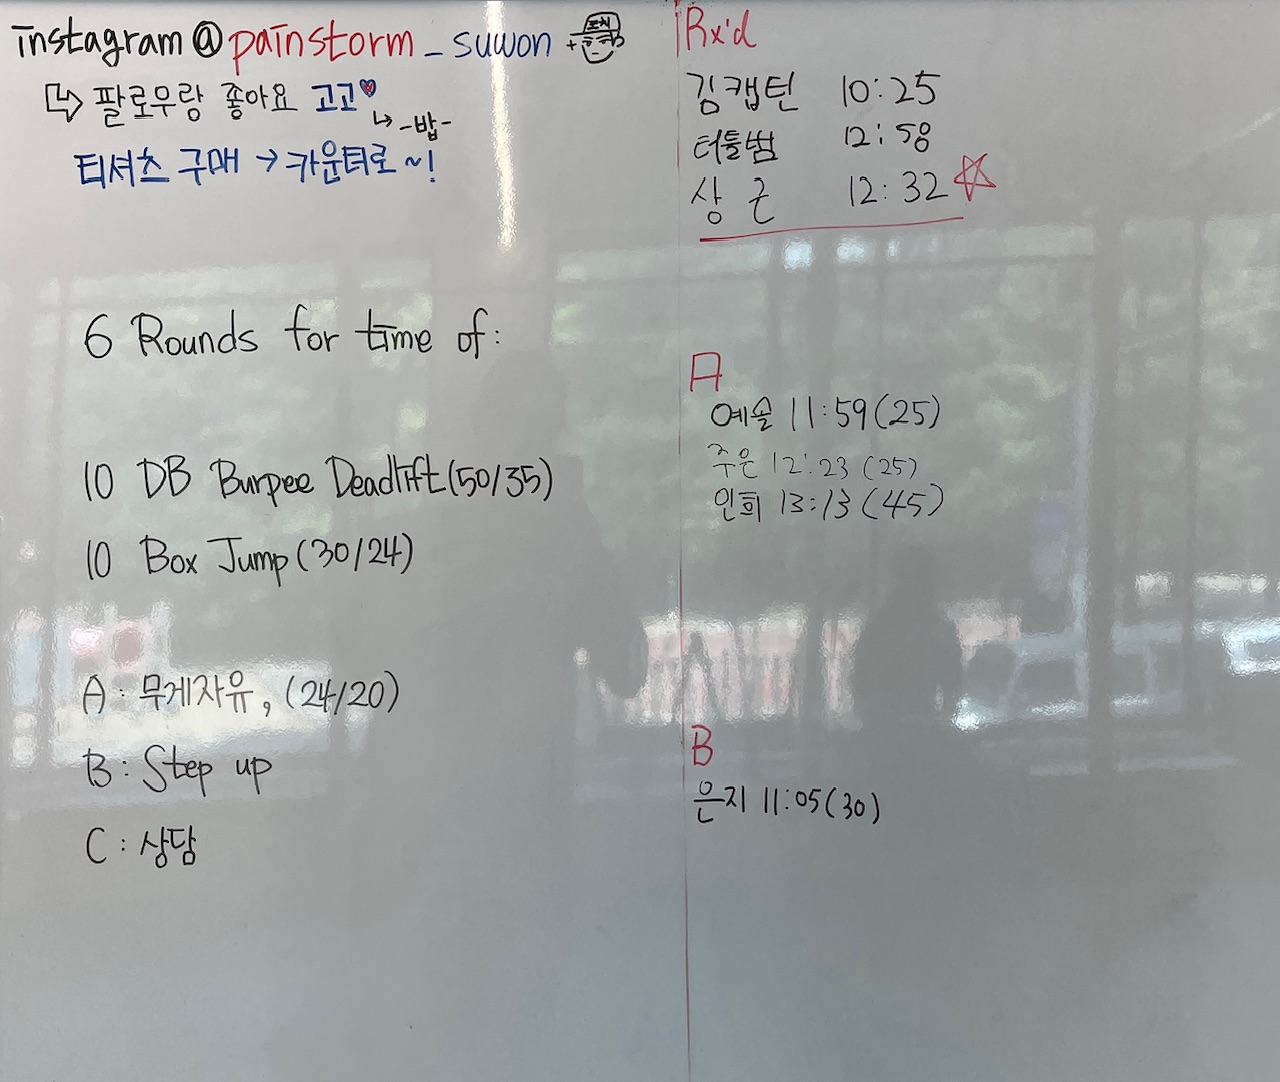 instagram@painstorm_suwon
↳ 팔로우랑 좋아요 고고♥
↳ -밥-
티셔츠 구매 → 카운터로~!
6 Rounds for time of:
10 DB Burpee Deadlift(50/35)
10 Box Jump(30/24)
A: 무게자유, (24/20)
B: Step up
C: 상담
Rx'd
김캡틴 10:25
터틀범 12:58
상근 12:32☆
A
예솔 11:59(25)
주은 12:23(25)
인희 13:13(45)
B
은지 11:05(30)